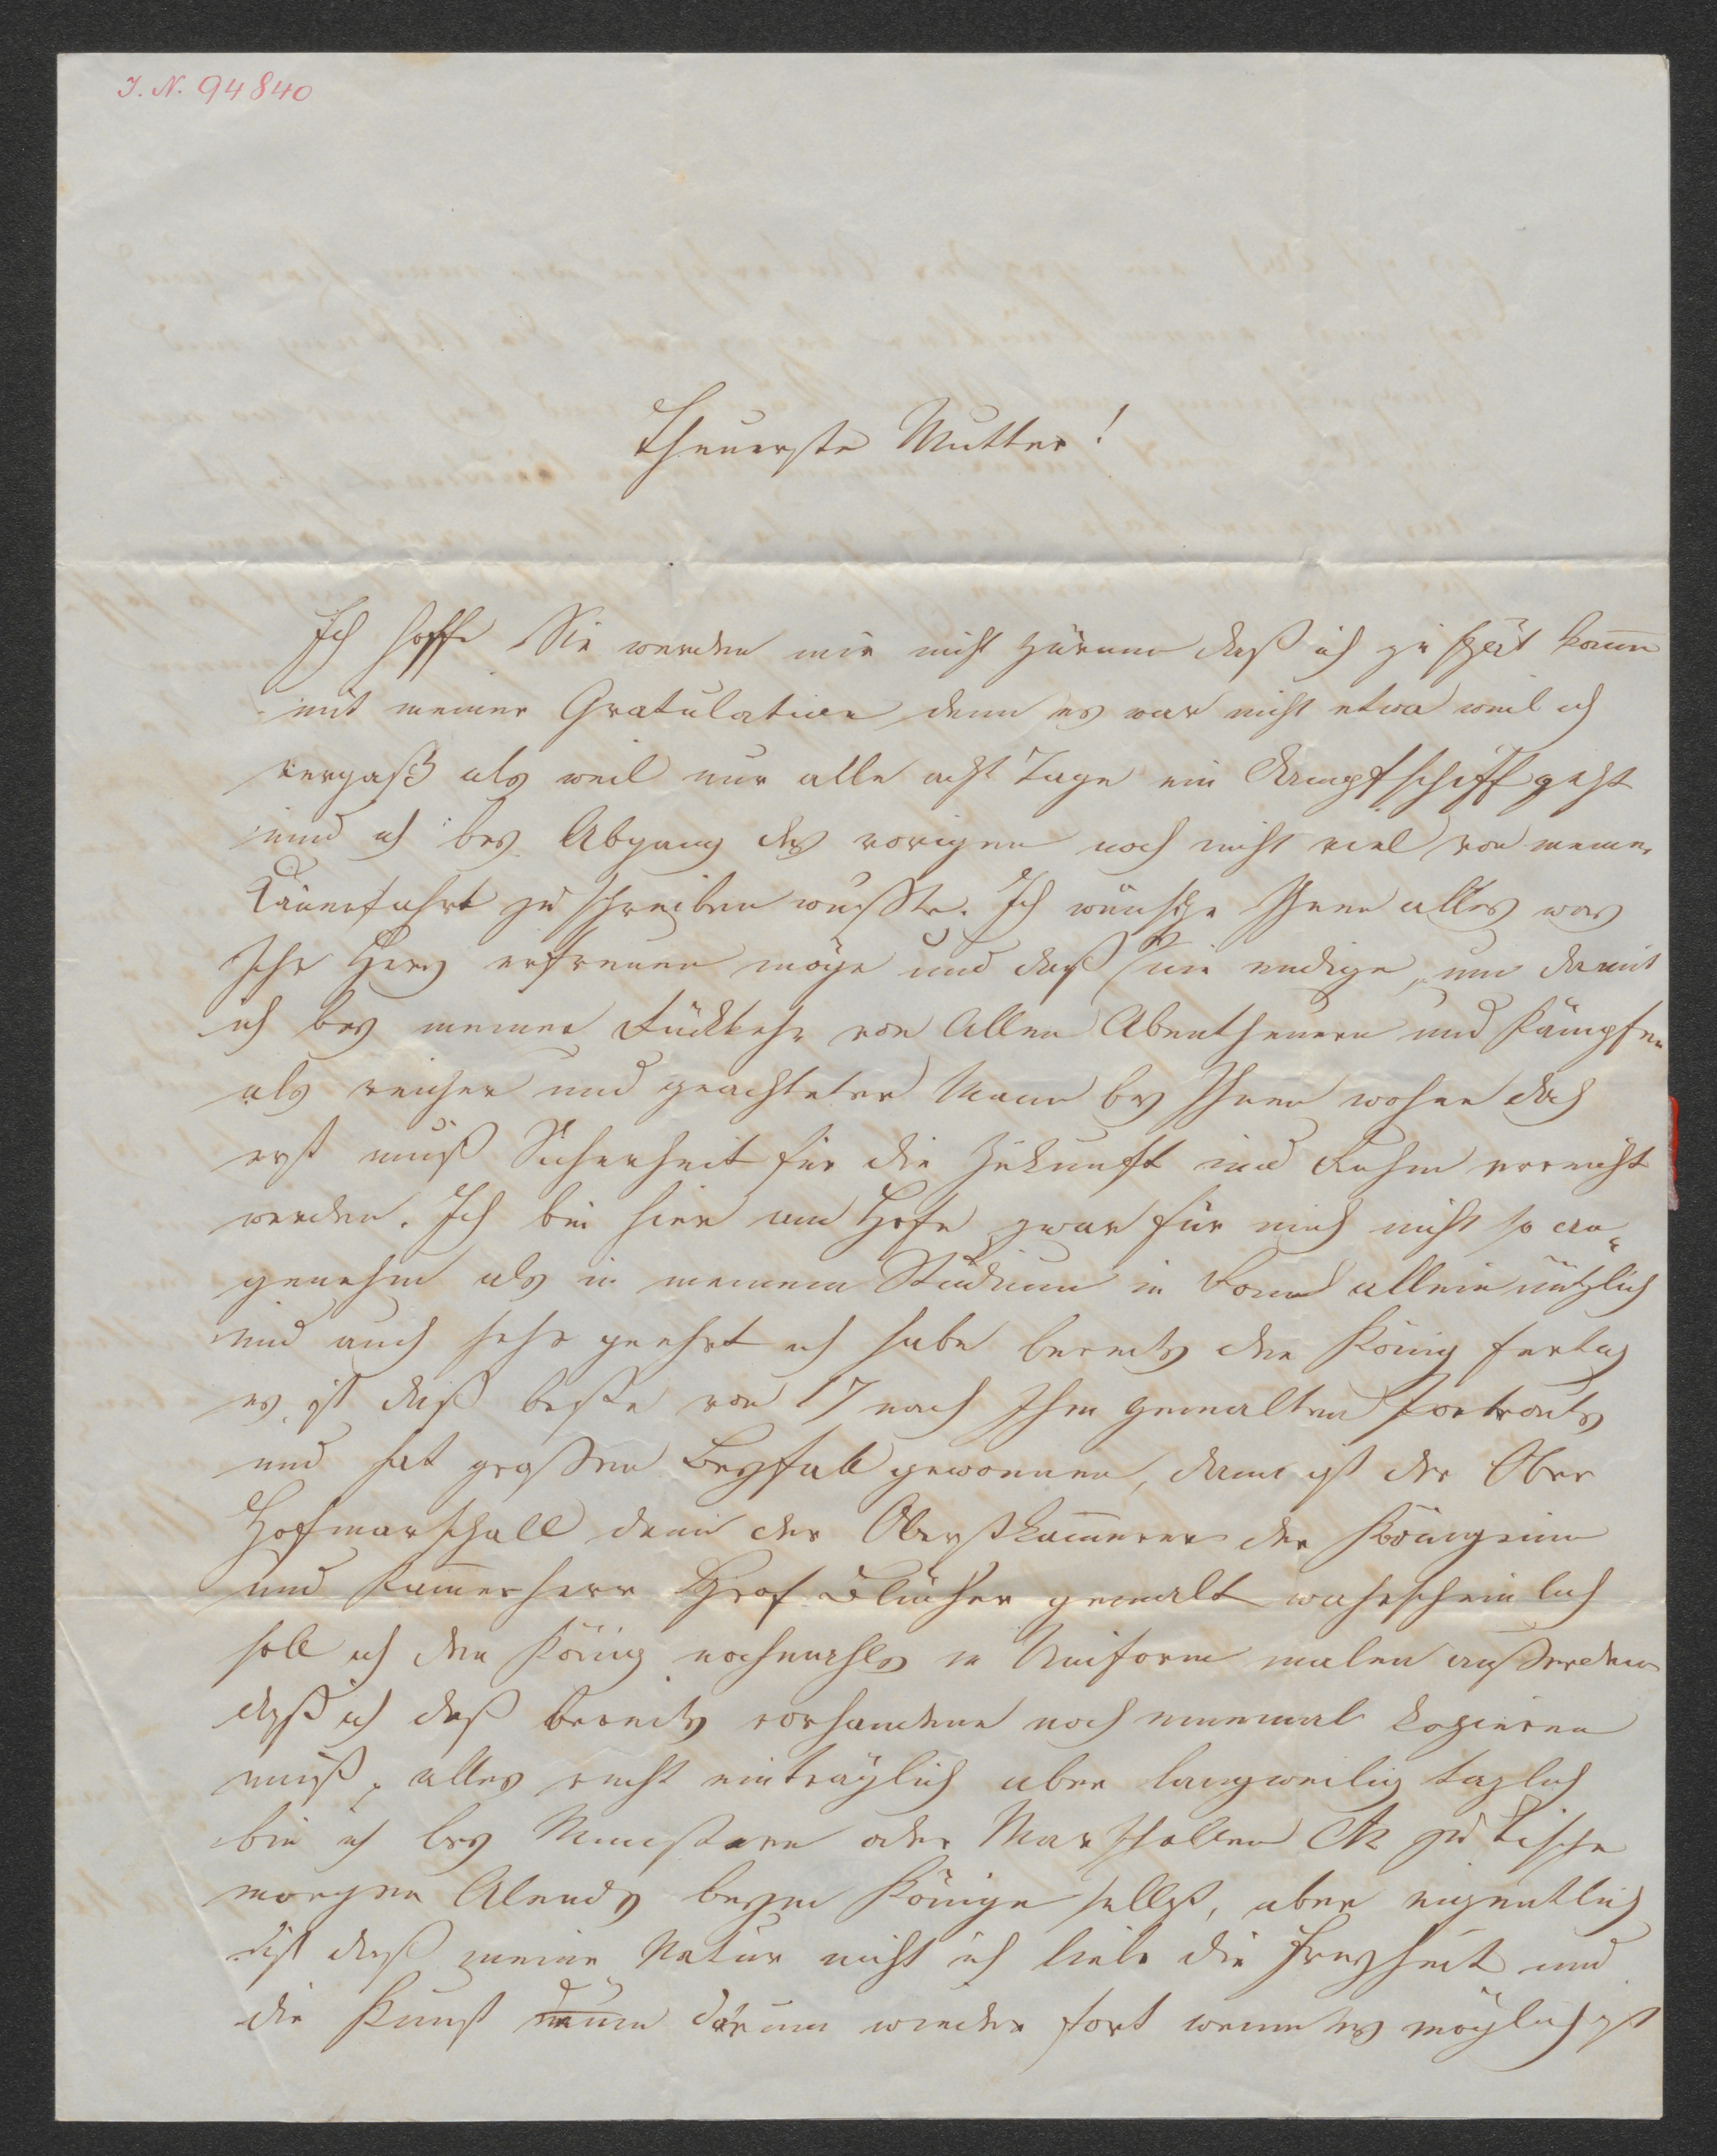 I. N. 94840
Theuerste Mutter!
Ich hoffe Sie werden mir nicht zürnen daß ich zu spät kom̅e
mit meiner Gratulation denn es war nicht etwa weil ich
vergaß als weil nur alle acht Tage ein Dampfschiff geht
und ich bey Abgang des vorigen noch nicht viel von meiner
zu schreiben wußte. Ich wünsche Ihnen alles was
Ihr Herz erfreuen möge und daß nie endige, um damit
ich bey meiner Rückkehr von Allen Abentheuern und Kämpfen
als reicher und geachteter Mann bey Ihnen wohne doch
erst muß Sicherheit für die Zukunft und Ruhm erreicht
werden. Ich bin hier am Hofe zwar für mich nicht so an-
genehm als in meinem Studium in Rom allein nützlich
und auch sehr geehrt ich habe bereits den König fertig
es ist daß beste von 17 nach Ihm gemalten Portraits
und hat großen Beyfall gewonnen, dann ist der Ober
Hofmarschall dann der Oberstkam̅erer der Königinn
und Kam̅erherr Graf Blücher gemalt wahrscheinlich
soll ich den König nochmahls in Uniform malen außerdem
daß ich daß bereits vorhandene noch einmal kopieren
muß, alles recht einträglich aber langweilig täglich
bin ich bey Ministern oder Marschallen etc zu Tische
morgen Abends beym Könige selbst, aber eigentlich
ist daß meine Natur nicht ich liebe die Freyheit und
die Kunst darum wieder fort wenn es möglich ist